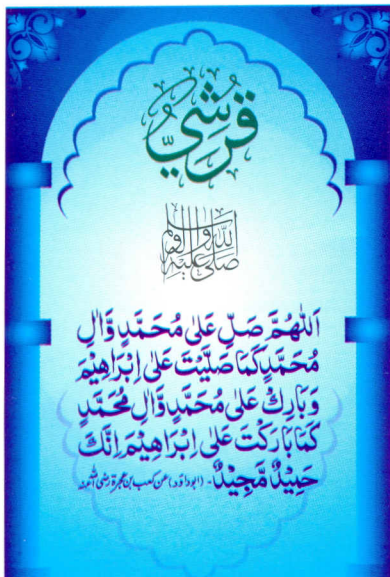 قُرَشِيٌّ
صلى الله عليه وآله وسلم
اَللّٰهُمَّ صَلِّ عَلٰى مُحَمَّدٍ وَّاٰلِ
مُحَمَّدٍ كَمَا صَلَّيْتَ عَلٰى اِبْرَاهِيْمَ
وَبَارِكْ عَلٰى مُحَمَّدٍ وَّاٰلِ مُحَمَّدٍ
كَمَا بَارَكْتَ عَلٰى اِبْرَاهِيْمَ اِنَّكَ
حَمِيْدٌ مَّجِيْدٌ۔ (ابوداؤد) عن کعب بن عجرة رضی اللہ عنہ